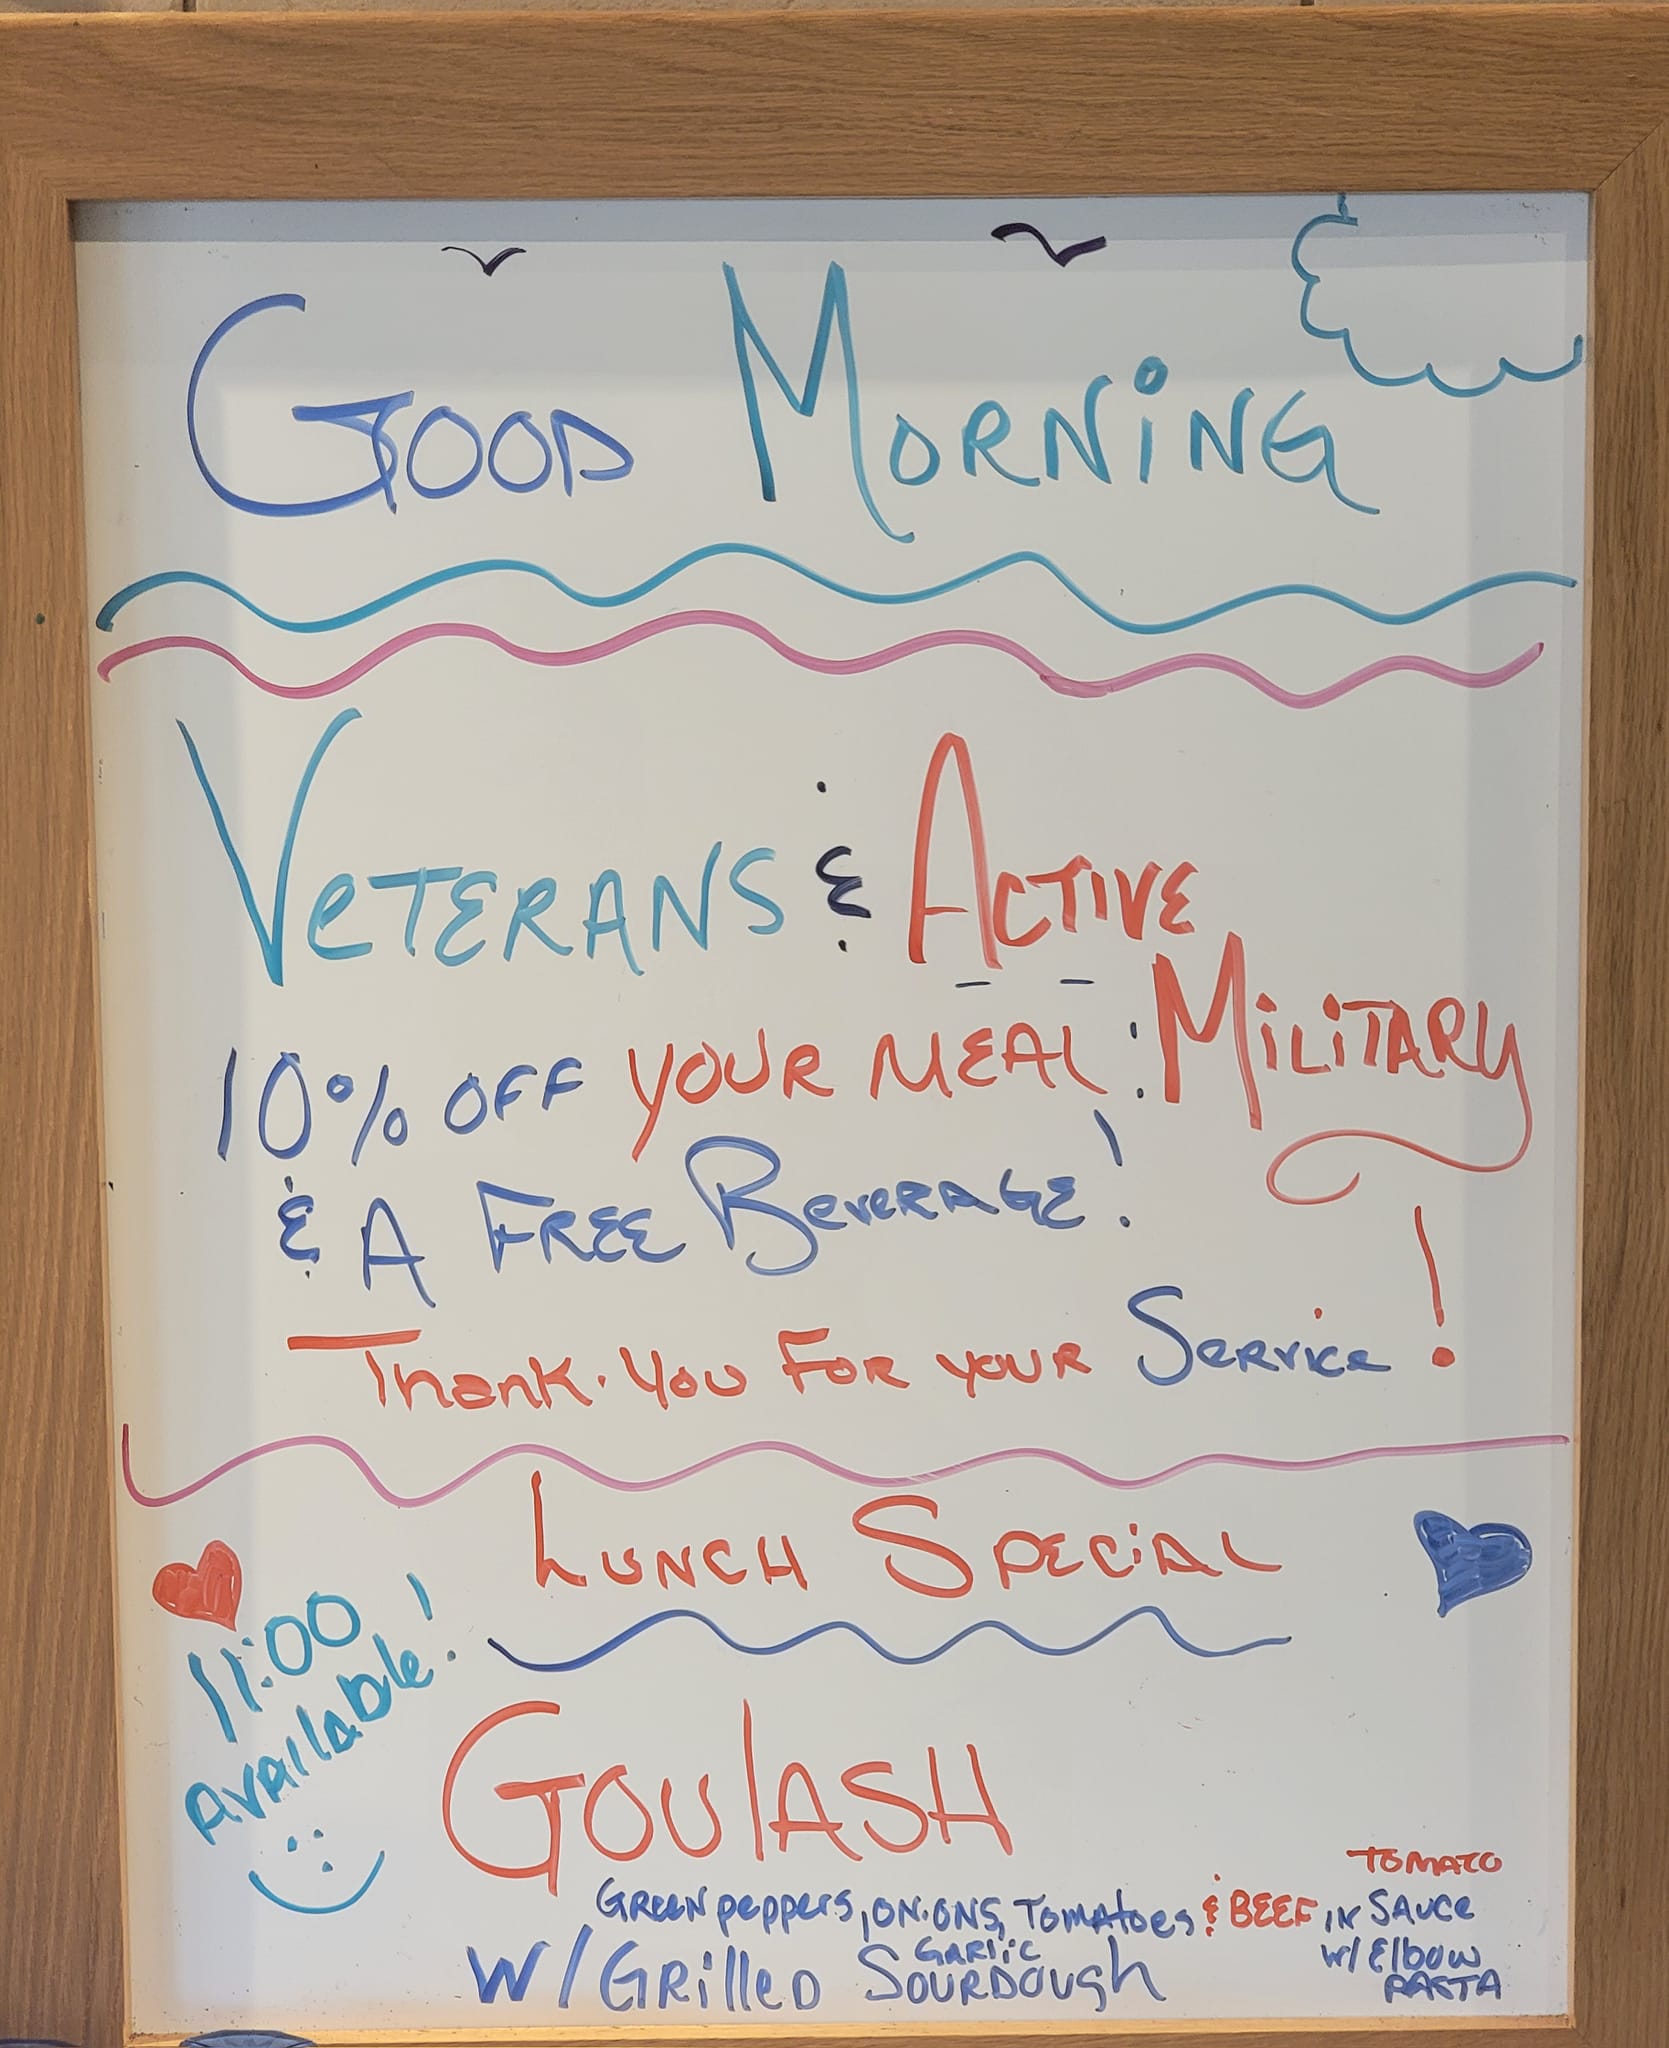 GOOD MORNING
VETERANS & ACTIVE
MILITARY
10% OFF YOUR MEAL
& A FREE BEVERAGE!
Thank. you FOR YOUR SERVICE!
LUNCH SPECIAL
11:00
AVAilABle!
GOULASH
GREEN peppers, ONIONS, TOMATOES & BEEF IN TOMATO SAUCE
W/ Elbow
PASTA
W/ GRillED GARlic SOURDOUGH